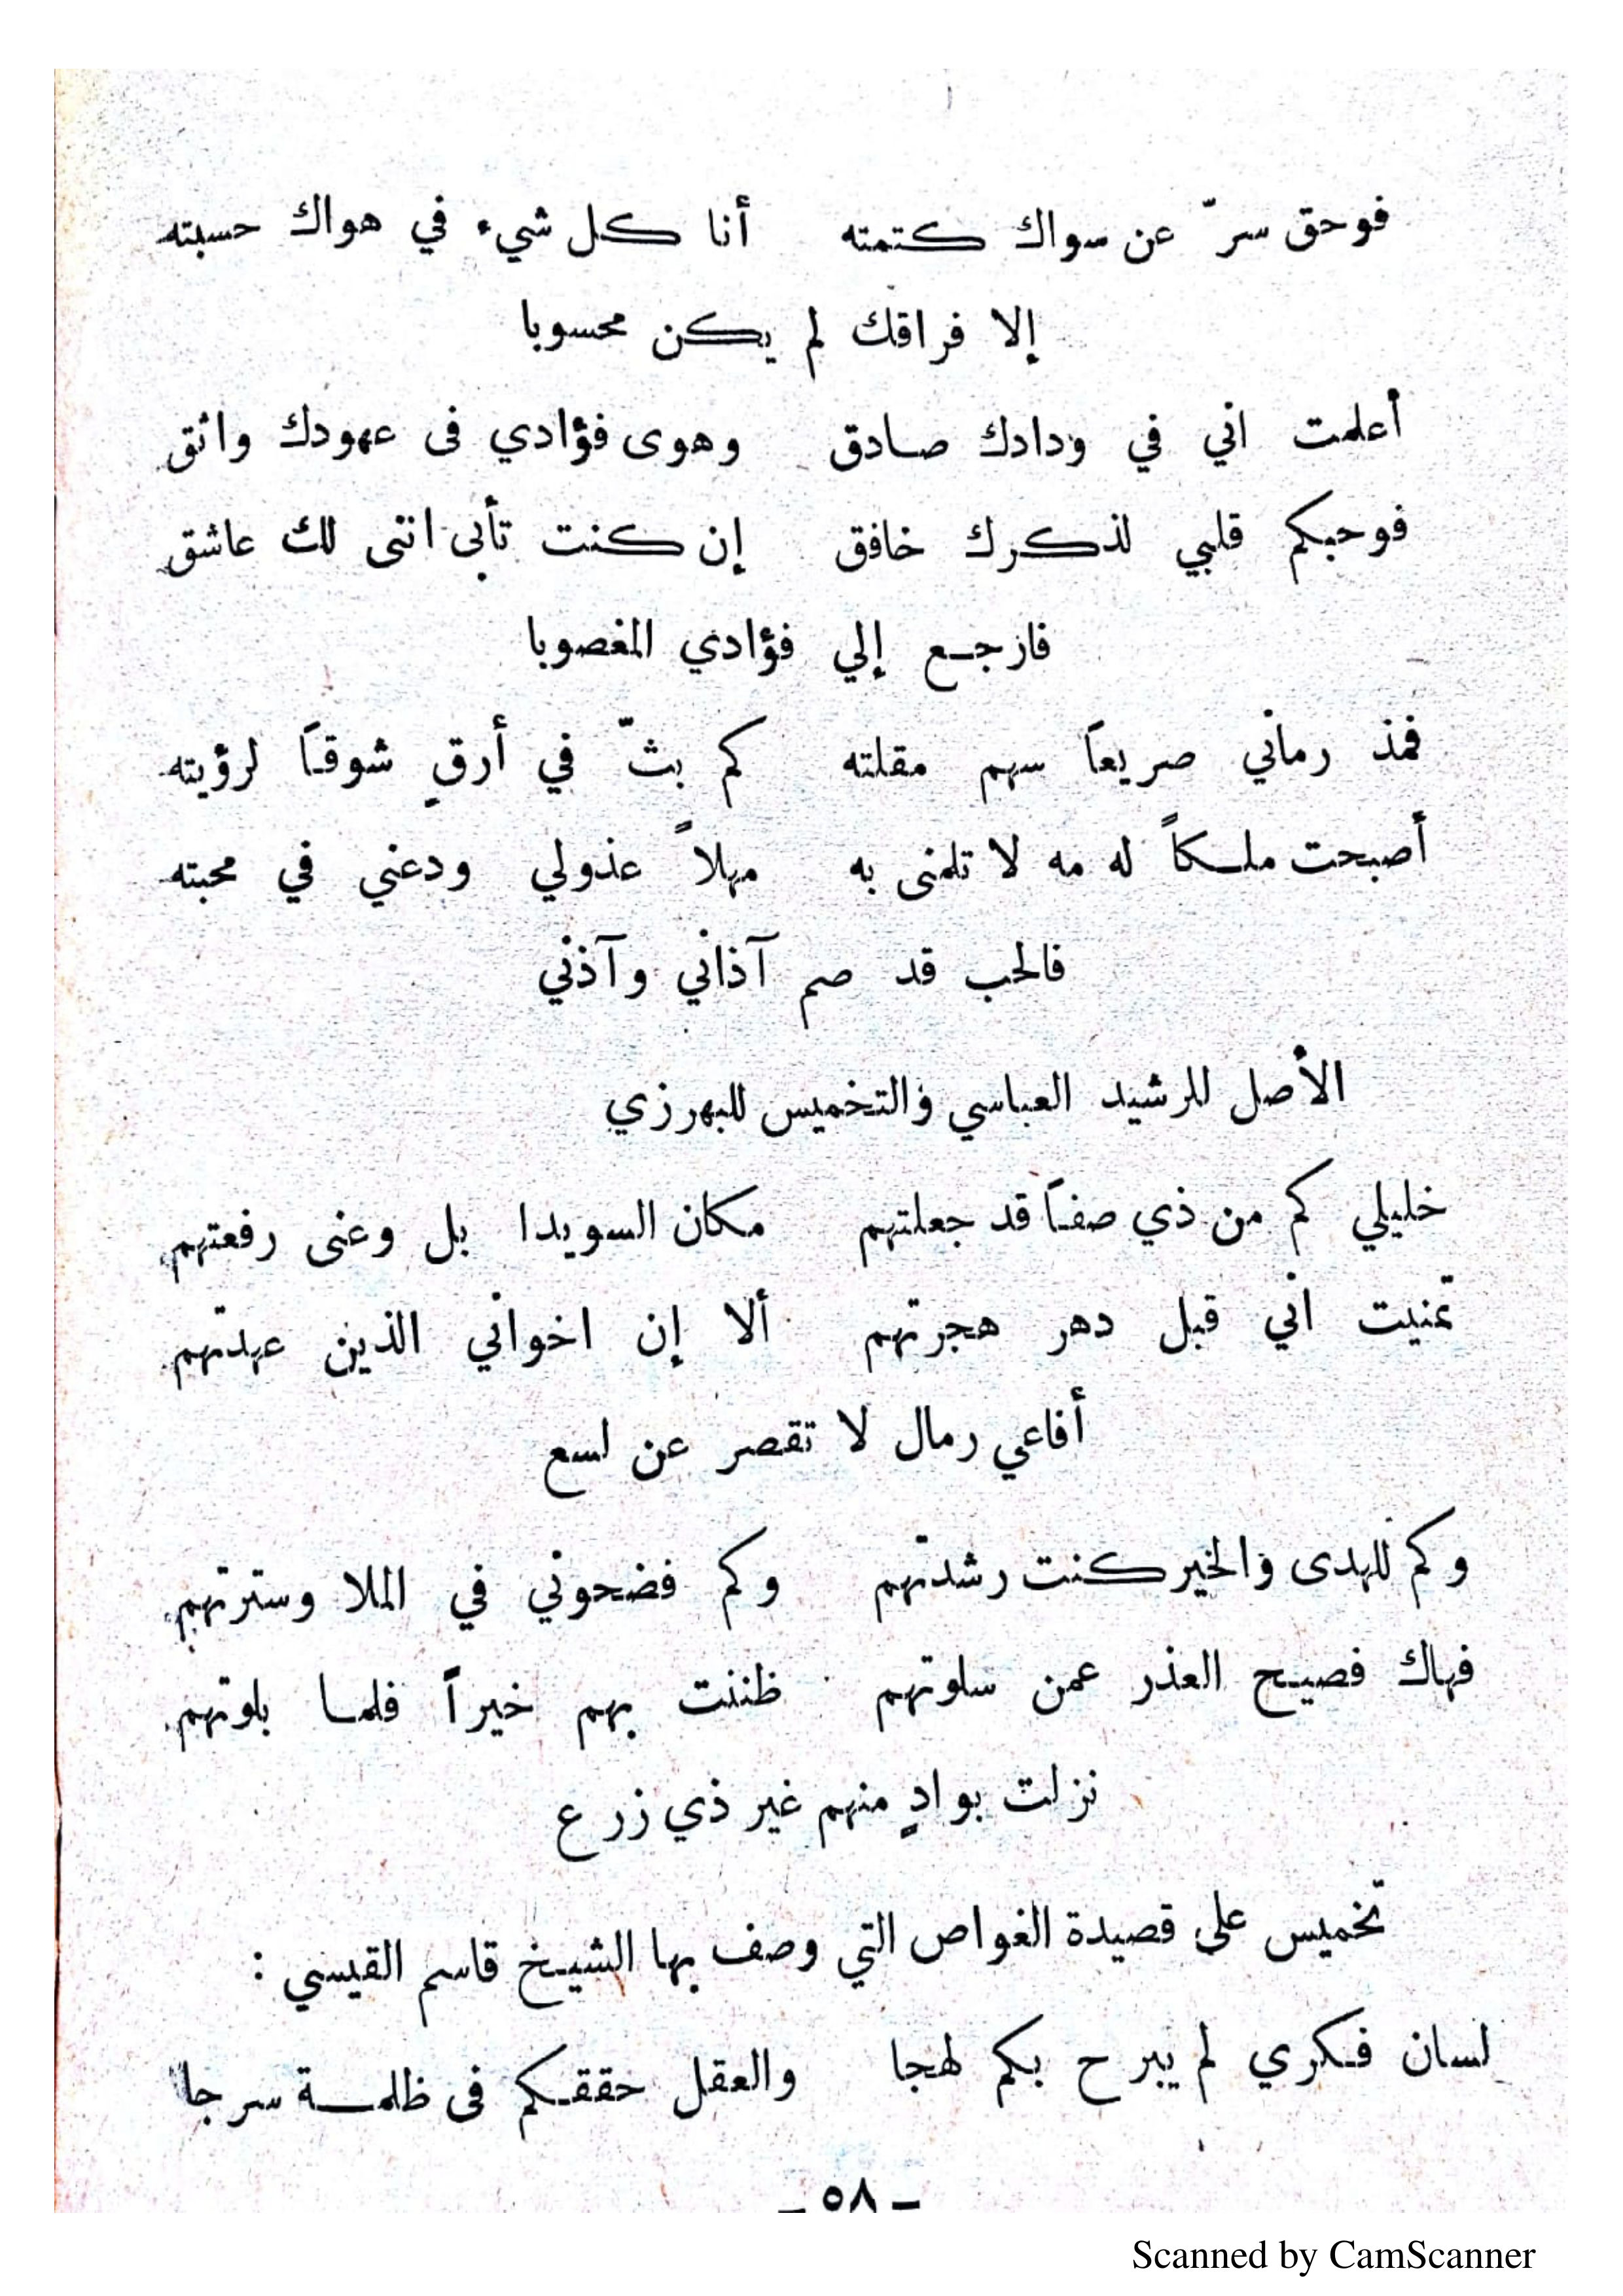 فوحق سرّ عن سواك كتمته أنا كل شيء في هواك حسبته
إلا فراقك لم يكن محسوبا
أعلمت اني في ودادك صادق وهوى فؤادي فى عهودك واثق
فوحبكم قلبي لذكرك خافق إن كنت تأبى انتى لك عاشق
فازجع إلي فؤادي المغصوبا
فمذ رماني صريعاً سهم مقلته كم بثّ في أرقٍ شوقاً لرؤيته
أصبحت ملكاً له مه لا تلمنى به مهلاً عذولي ودعني في محبته
فالحب قد صم آذاني وآذني
الأصل للرشيد العباسي والتخميس للبهرزي
خليلي كم من ذي صفاً قد جعلتهم مكان السويدا بل وعنى رفعتهم
تمنيت اني قبل دهر هجرتهم ألا إن اخواني الذين عهدتهم
أفاعي رمال لا تقصر عن لسع
وكم للهدى والخير كنت رشدتهم وكم فضحوني في الملا وسترتهم
فهاك فصيح العذر عمن سلوتهم ظننت بهم خيراً فلما بلوتهم
نزلت بوادٍ منهم غير ذي زرع
تخميس على قصيدة الغواص التي وصف بها الشيخ قاسم القيسي :
لسان فكري لم يبرح بكم لهجا والعقل حققكم فى ظلمة سرجا
– ٥٨ –
Scanned by CamScanner